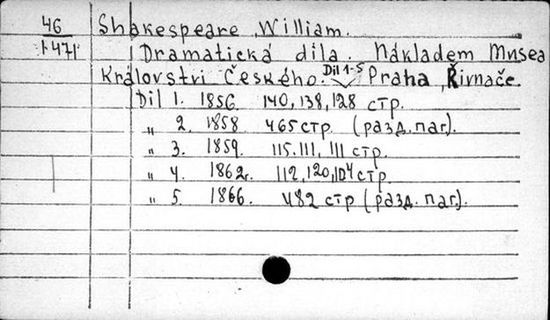 46
1471
Shakespeare, William.
Dramatická díla. Nákladem Musea
Království Českého. Díl 1-5 Praha, Řivnáče.
Díl 1. 1856. 140, 138, 128 стр.
„ 2. 1858 465 стр. (разд. паг.).
„ 3. 1859. 115. 111, 111 стр.
„ 4. 1862. 112, 120, 104 стр.
„ 5. 1866. 482 стр (разд. паг.).